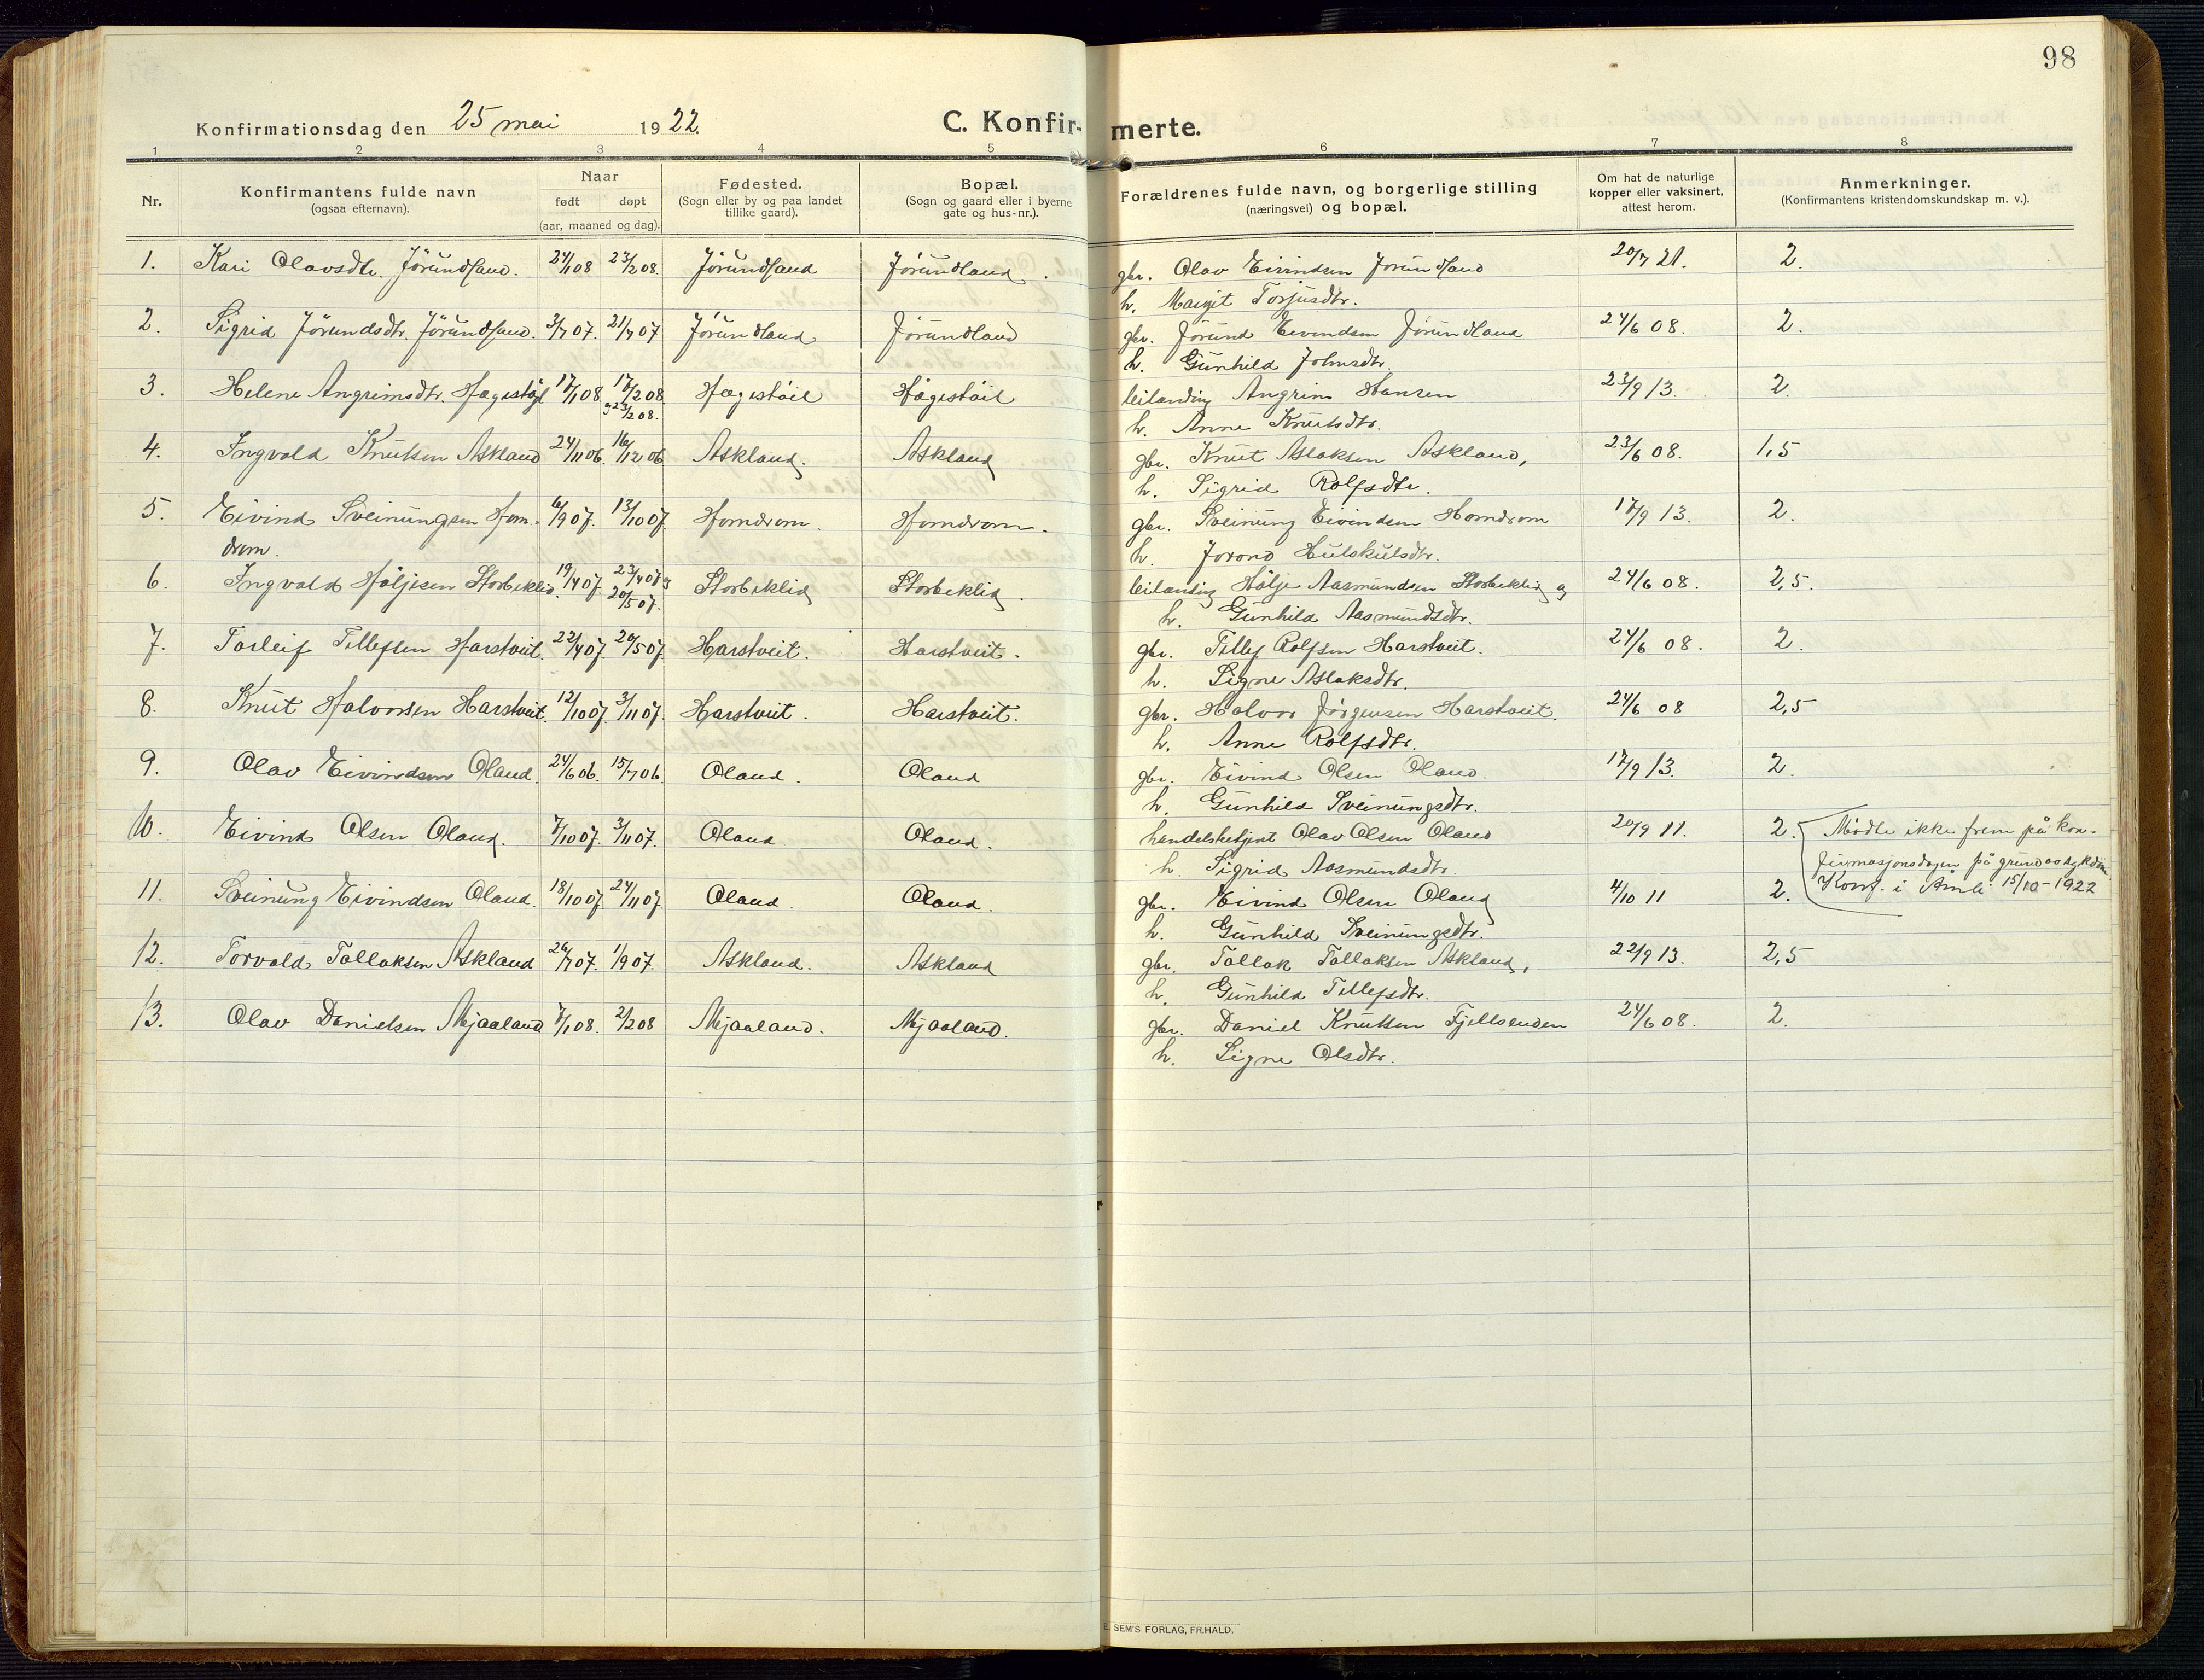 98
Konfirmationsdag den 25 mai 1922.
C. Konfir-merte.
1 2 3 4 5 6 7 8
Nr.
Konfirmantens fulde navn
(ogsaa efternavn).
Naar
født døpt
(aar, maaned og dag).
Fødested.
(Sogn eller by og paa landet
tillike gaard).
Bopæl.
(Sogn og gaard eller i byerne
gate og hus-nr.).
Forældrenes fulde navn, og borgerlige stilling
(næringsvei) og bopæl.
Om hat de naturlige
kopper eller vaksinert,
attest herom.
Anmerkninger.
(Konfirmantens kristendomskundskap m. v.).
1. Kari Olavsdtr. Jörundland. 24/1 08 23/2 08. Jörundland Jörundland. gbr. Olav Eivindsen Jörundland 20/7 21. 2.
h. Margit Torjusdtr.
2. Sigrid Jörundsdtr. Jörundland. 3/7 07. 21/7 07 Jörundland Jörundland gbr. Jörund Eivindsen Jörundland 24/6 08. 2.
h. Gunhild Johnsdtr.
3. Helene Angrimsdtr. Hægistöyl 17/1 08. 17/2 08 Hægistöil Hægistöil leilænding Angrim Hansen 23/9 13. 2.
23/2 08. h. Anne Knutsdtr.
4. Ingvald Knutsen Askland 24/11 06. 16/12 06 Askland. Askland gbr. Knut Aslaksen Askland, 23/6 08. 1,5
h. Sigrid Rolfsdtr.
5. Eivind Sveinungsen Hom- 6/9 07. 13/10 07. Homdrom. Homdrom. gbr. Sveinung Eivindsen Homdrom 17/9 13. 2.
drom. h. Jorond
6. Ingvald Höljesen Storbeklid. 19/4 07. 23/4 07 og Storbeklid Storbeklid. leilænding Hölje Aasmundsen Storbeklid og 24/6 08. 2,5.
20/5 07. h. Gunhild Aasmundsdtr.
7. Torleif Tellefsen Harstveit 22/4 07. 20/5 07. Harstveit. Harstveit. gbr. Tellef Rolfsen Harstveit. 24/6 08. 2.
h. Signe Aslaksdtr.
8. Knut Halvorsen Harstveit. 12/10 07. 3/11 07. Harstveit. Harstveit. gbr. Halvor Jörgensen Harstveit. 24/6 08 2,5
h. Anne Rolfsdtr.
9. Olav Eivindsen Oland. 24/6 06. 15/7 06. Oland. Oland gbr. Eivind Olsen Oland. 17/9 13. 2.
h. Gunhild Sveinungsdtr.
10. Eivind Olsen Oland. 7/10 07. 3/11 07. Oland. Oland. handelsbetjent Olav Olsen Oland 20/9 11. 2. Mödte ikke frem på kon-
h. Sigrid Aasmundsdtr. firmasjonsdagen på grund av sykdom.
11. Sveinung Eivindsen Oland. 18/10 07. 24/11 07. Oland. Oland. gbr. Eivind Olsen Oland 4/10 11 2. Konf. i Åmli 15/10-1922
h. Gunhild Sveinungsdtr.
12. Torvald Tallaksen Askland 26/7 07. 1/9 07. Askland. Askland gbr. Tallak Tallaksen Askland, 22/9 13. 2,5
h. Gunhild Tellefsdtr.
13. Olav Danielsen Mjaaland 7/1 08. 2/2 08 Mjaaland. Mjaaland. gbr. Daniel Knutsen 24/6 08. 2.
h. Signe Olsdtr.
E. SEM'S FORLAG, FR.HALD.